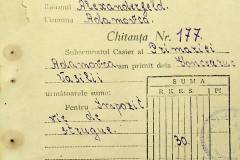 Raionul Alexanderfeld.
Comuna Adamovca
Chitanța Nr. 177.
Subsemnatul Casier al Primariei
Adamovca am primit dela Goncearuc
Vasilii
următoarele sume:
SUMA
R. K. K. S.
Pf.
Pentru Impozit
vie de
strugure.
30.